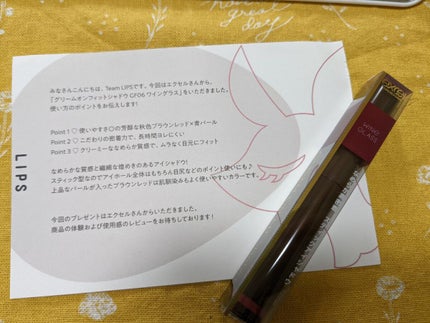 great
day
みなさんこんにちは、Team LIPSです。今回はエクセルさんから、
「グリームオンフィットシャドウ GF06 ワイングラス」をいただきました。
使い方のポイントをお伝えします!
Point 1 ♡ 使いやすさ◎の芳醇な秋色ブラウンレッド×青パール
Point 2 ♡ こだわりの密着力で、長時間ヨレにくい
Point 3 ♡ クリーミーななめらか質感で、ムラなく目元にフィット
なめらかな質感と繊細な煌めきのあるアイシャドウ!
スティック型なのでアイホール全体はもちろん目尻などのポイント使いにも♪
上品なパールが入ったブラウンレッドは肌馴染みもよく使いやすいカラーです。
今回のプレゼントはエクセルさんからいただきました。
商品の体験および使用感のレビューをお待ちしております!
LIPS
WINE
GLASS